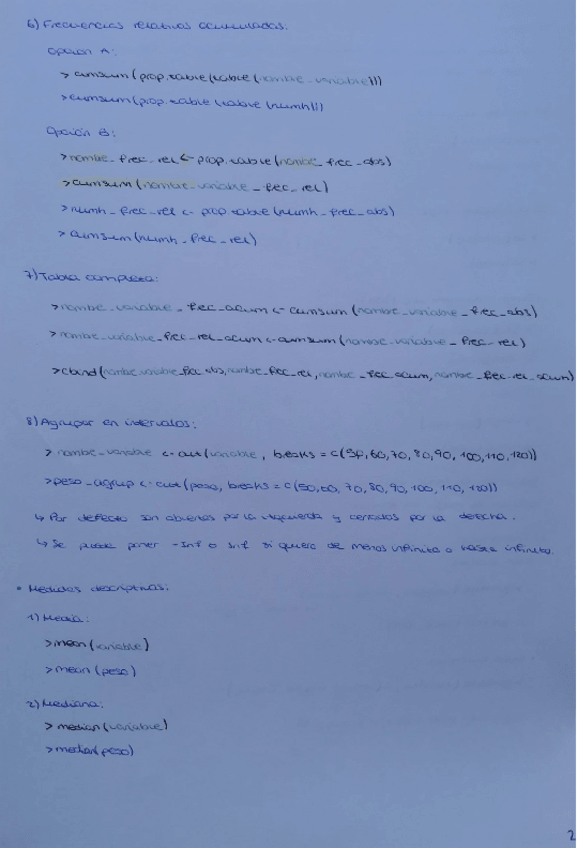 6) Frecuencias relativas acumuladas:
Opción A:
> cumsum(prop.table(table(nombre_variable)))
> cumsum(prop.table(table(numh)))
Opción B:
> nombre_frec_rel <- prop.table(nombre_frec_abs)
> cumsum(nombre_variable_frec_rel)
> numh_frec_rel <- prop.table(numh_frec_abs)
> cumsum(numh_frec_rel)
7) Tabla completa:
> nombre_variable_frec_acum <- cumsum(nombre_variable_frec_abs)
> nombre_variable_frec_rel_acum <- cumsum(nombre_variable_frec_rel)
> cbind(nombre_variable_frec_abs, nombre_frec_rel, nombre_frec_acum, nombre_frec_rel_acum)
8) Agrupar en intervalos:
> nombre_variable <- cut(variable, breaks = c(50,60,70,80,90,100,110,120))
> peso_agrup <- cut(peso, breaks = c(50,60,70,80,90,100,110,120))
↳ Por defecto son abiertos por la izquierda y cerrados por la derecha.
↳ Se puede poner -Inf o Inf si quiero de menos infinito o hasta infinito.
• Medidas descriptivas:
1) Media:
> mean(variable)
> mean(peso)
2) Mediana:
> median(variable)
> median(peso)
2